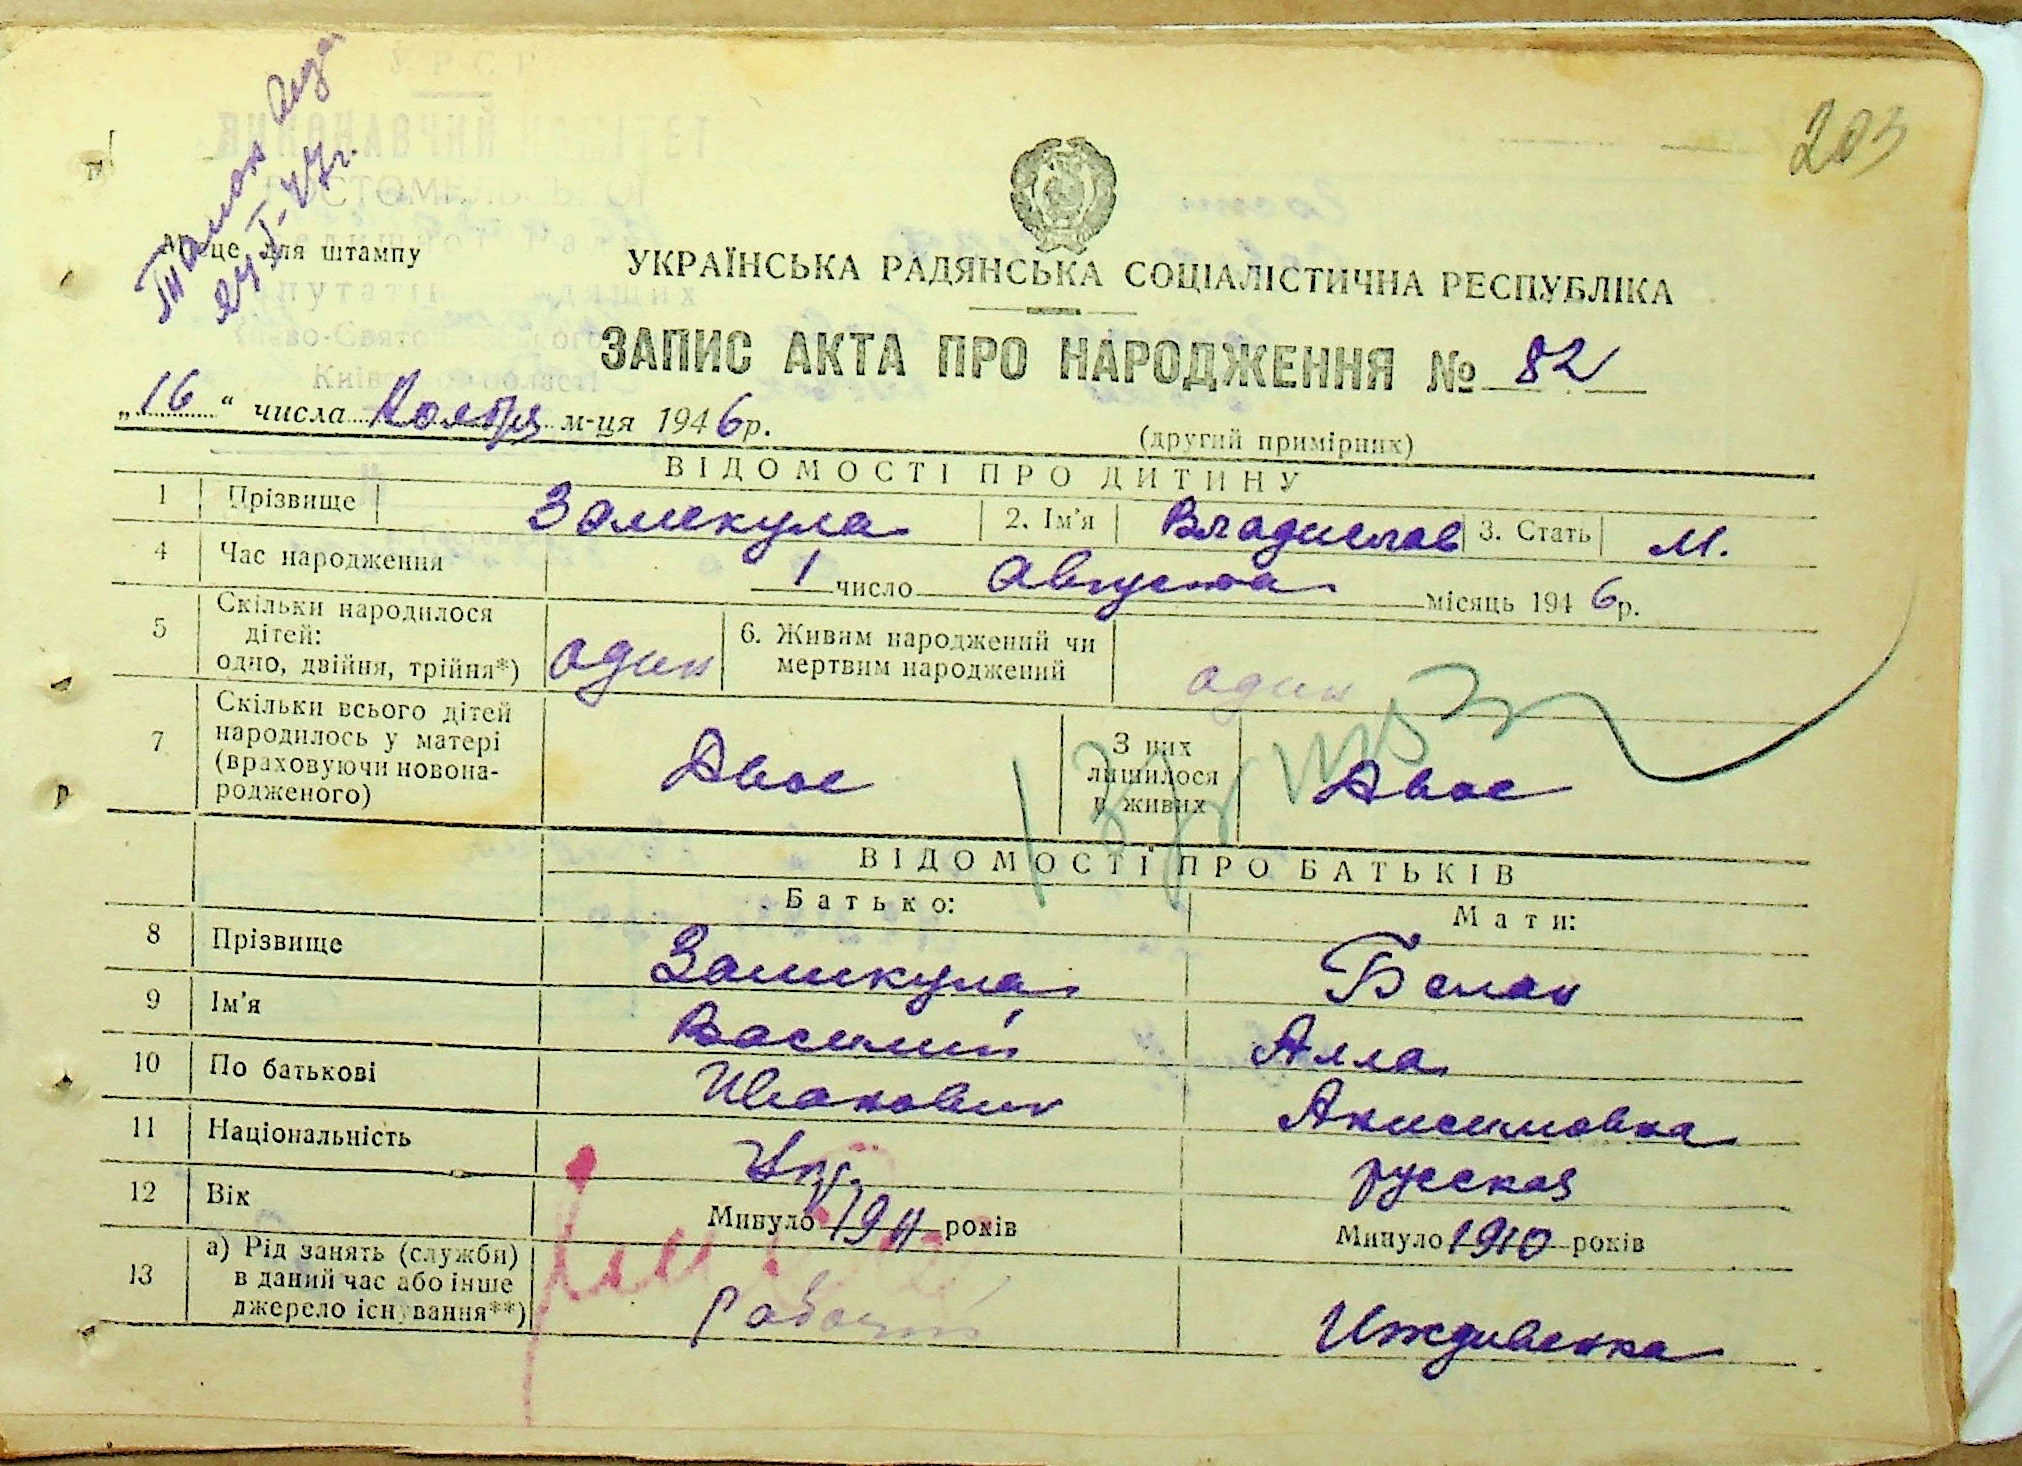 Талон
24/I-47 г.
203
Місце для штампу
УКРАЇНСЬКА РАДЯНСЬКА СОЦІАЛІСТИЧНА РЕСПУБЛІКА
ЗАПИС АКТА ПРО НАРОДЖЕННЯ № 82
„16“ числа Ноября м-ця 1946р.
(другий примірник)
ВІДОМОСТІ ПРО ДИТИНУ
1 Прізвище Замекула 2. Ім'я Владислав 3. Стать М.
4 Час народження 1 число Августа місяць 1946р.
5 Скільки народилося дітей: одно, двійня, трійня*) один 6. Живим народжений чи мертвим народжений один
7 Скільки всього дітей народилось у матері (враховуючи новонародженого) Двое З них лишилося в живих Двое
ВІДОМОСТІ ПРО БАТЬКІВ
Батько: Мати:
8 Прізвище Замикула Белан
9 Ім'я Василий Алла
10 По батькові Иванович Анисимовна
11 Національність Укр. русская
12 Вік Минуло 1911 років Минуло 1910 років
13 а) Рід занять (служби) в даний час або інше джерело існування**) Рабочий Иждивенка